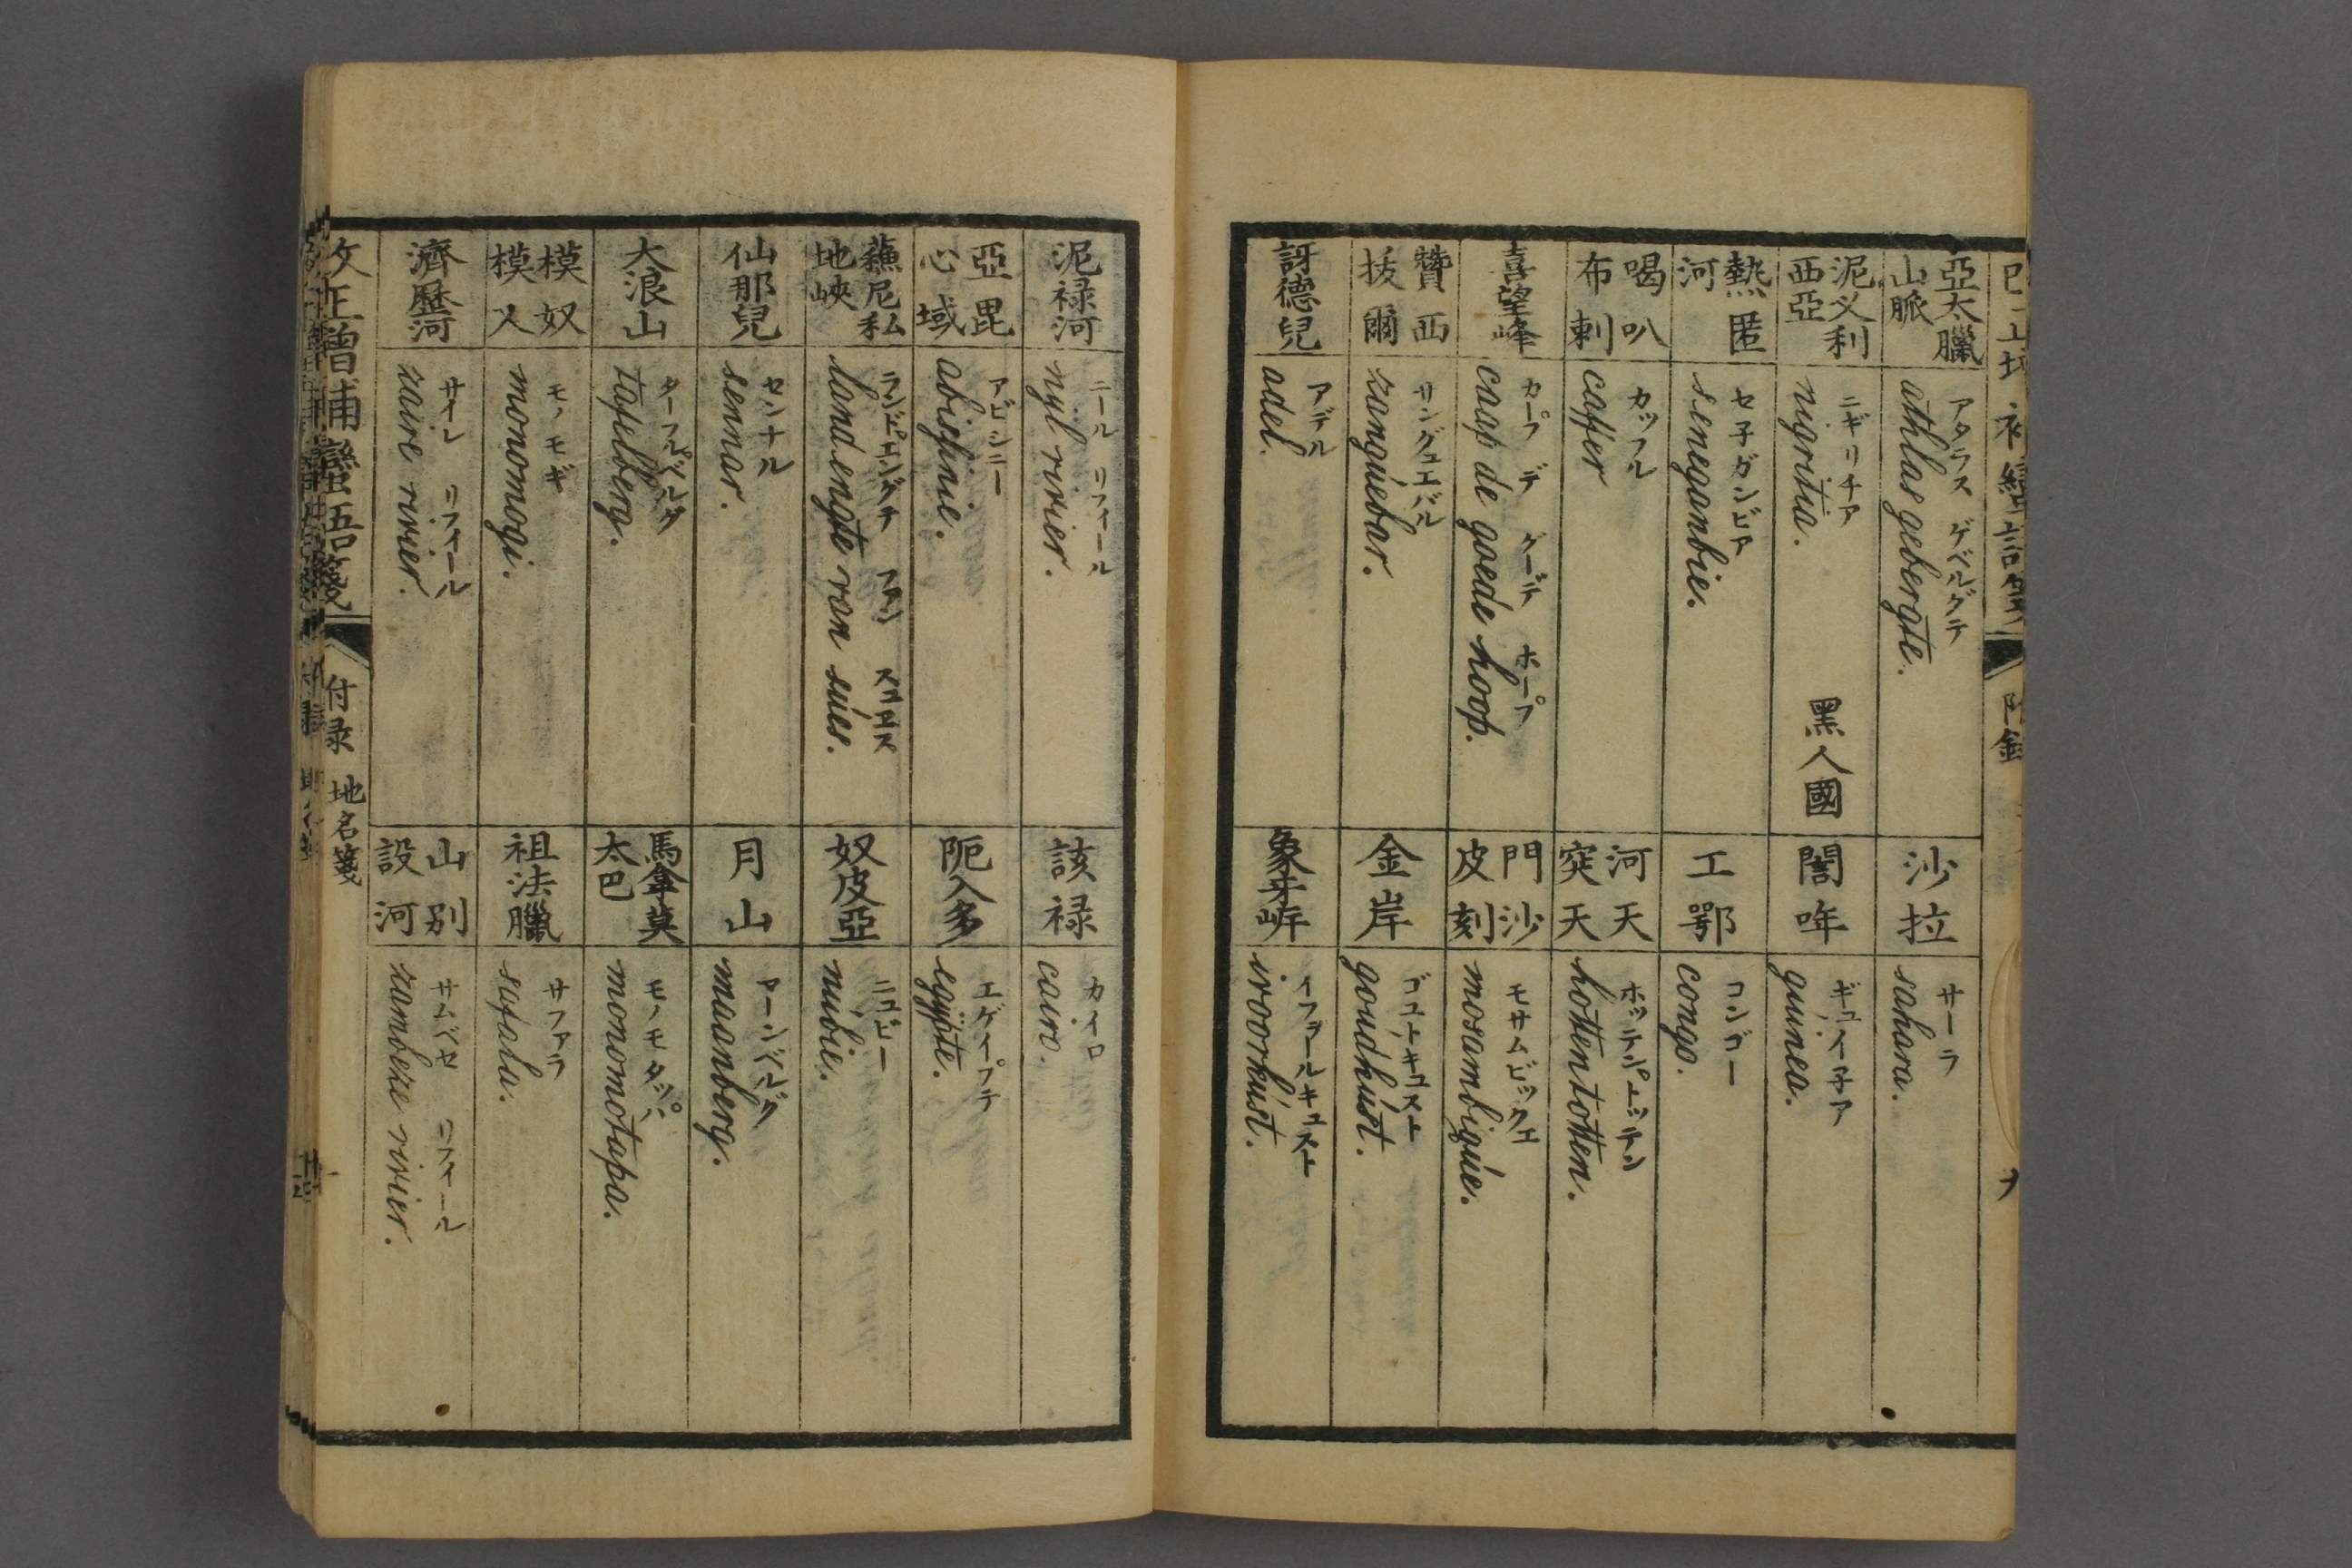 亞太臘山脈
アタラス ゲベルグテ
athlas gebergte.
沙拉
サーラ
sahara.
泥义利西亞
ニギリチア
nigritia.
黑人國
誾哖
ギュイ子ア
guinea.
熱匿河
セ子ガンビア
seneganbie.
工鄂
コンゴー
congo.
喝叭布剌
カッフル
caffer
河天突天
ホッテンポトッテン
hottentotten.
喜望峰
カープ デ グーデ ホープ
caap de goede hoop.
門沙皮刻
モサムビックエ
mosambique.
贊西拔爾
サングエバル
zanguebar.
金岸
ゴユトキユスト
goudkust.
訝德兒
アデル
adel.
象牙岸
イフヲールキュスト
ivoorkust.
泥禄河
ニール リフィール
nyl rivier.
該禄
カイロ
cairo.
亞毘心域
アビシニー
abissinie.
阨入多
エゲイプテ
egÿpte.
蘓尼私地峽
ランドエングテ ファン スユエス
landengte van súes.
奴皮亞
ニユビー
núbie.
仙那兒
センナル
sennar.
月山
マーンベルグ
maanberg.
大浪山
ターフルベルグ
tafelberg.
馬拿莫太巴
モノモタッパ
monomotapa.
模奴模乂
モノモギ
monomogi.
祖法臘
サファラ
safala.
濟歷河
サイレ リフィール
zaire rivier.
山別設河
サムベセ リフィール
zambeze rivier.
改正增補蠻語箋 付录 地名箋